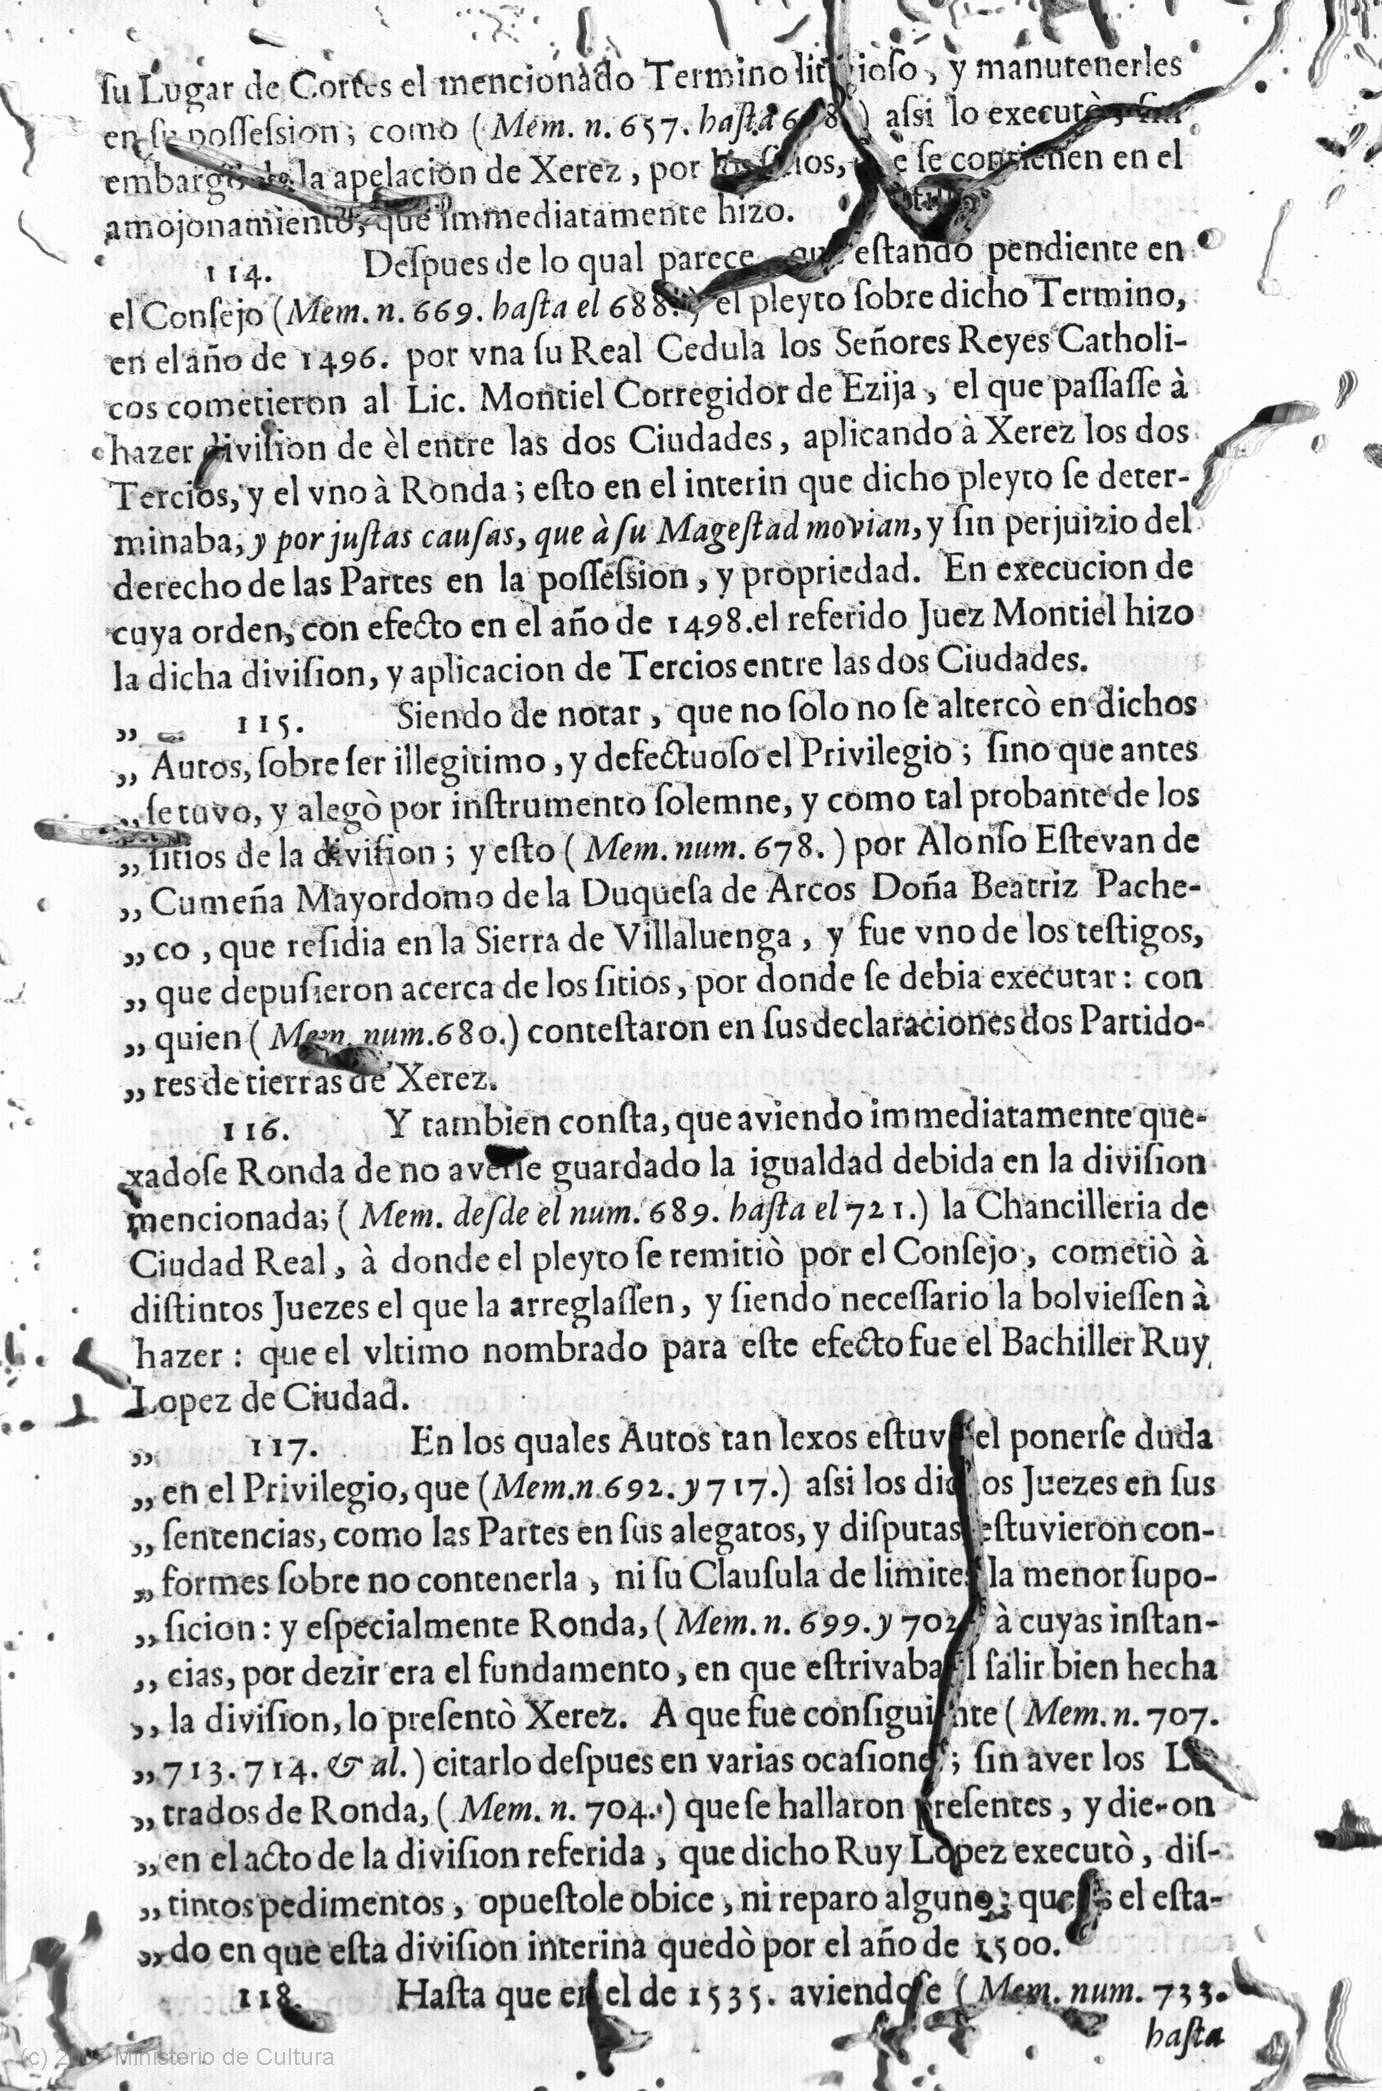 ſu Lugar de Cortes el mencionado Termino litigioſo, y manutenerles
en ſu poſſeſsion; como (Mem. n. 657. haſta 6 8.) aſsi lo executò, ſin
embargo de la apelacion de Xerez, por los ſitios, que ſe contienen en el
amojonamiento, que immediatamente hizo.
114. Deſpues de lo qual parece, que eſtando pendiente en
el Conſejo (Mem. n. 669. haſta el 688.) el pleyto ſobre dicho Termino,
en el año de 1496. por vna ſu Real Cedula los Señores Reyes Catholi-
cos cometieron al Lic. Montiel Corregidor de Ezija, el que paſſaſſe à
hazer diviſion de èl entre las dos Ciudades, aplicando à Xerez los dos
Tercios, y el vno à Ronda; eſto en el interin que dicho pleyto ſe deter-
minaba, y por juſtas cauſas, que à ſu Mageſtad movian, y ſin perjuizio del
derecho de las Partes en la poſſeſsion, y propriedad. En execucion de
cuya orden, con efecto en el año de 1498. el referido Juez Montiel hizo
la dicha diviſion, y aplicacion de Tercios entre las dos Ciudades.
„ 115. Siendo de notar, que no ſolo no ſe altercò en dichos
„ Autos, ſobre ſer illegitimo, y defectuoſo el Privilegio; ſino que antes
„ ſe tuvo, y alegò por inſtrumento ſolemne, y como tal probante de los
„ ſitios de la diviſion; y eſto (Mem. num. 678.) por Alonſo Eſtevan de
„ Cumeña Mayordomo de la Duqueſa de Arcos Doña Beatriz Pache-
„ co, que reſidia en la Sierra de Villaluenga, y fue vno de los teſtigos,
„ que depuſieron acerca de los ſitios, por donde ſe debia executar: con
„ quien (Mem. num. 680.) conteſtaron en ſus declaraciones dos Partido-
„ res de tierras de Xerez.
116. Y tambien conſta, que aviendo immediatamente que-
xadoſe Ronda de no averſe guardado la igualdad debida en la diviſion
mencionada; (Mem. deſde el num. 689. haſta el 721.) la Chancilleria de
Ciudad Real, à donde el pleyto ſe remitiò por el Conſejo, cometiò à
diſtintos Juezes el que la arreglaſſen, y ſiendo neceſſario la bolvieſſen à
hazer: que el vltimo nombrado para eſte efecto fue el Bachiller Ruy
Lopez de Ciudad.
„ 117. En los quales Autos tan lexos eſtuvo el ponerſe duda
„ en el Privilegio, que (Mem. n. 692. y 717.) aſsi los dichos Juezes en ſus
„ ſentencias, como las Partes en ſus alegatos, y diſputas eſtuvieron con-
„ formes ſobre no contenerla, ni ſu Clauſula de limites la menor ſupo-
„ ſicion: y eſpecialmente Ronda, (Mem. n. 699. y 702.) à cuyas inſtan-
„ cias, por dezir era el fundamento, en que eſtrivaba el ſalir bien hecha
„ la diviſion, lo preſentò Xerez. A que fue conſiguiente (Mem. n. 707.
„ 713. 714. & al.) citarlo deſpues en varias ocaſiones; ſin aver los Le-
„ trados de Ronda, (Mem. n. 704.) que ſe hallaron preſentes, y dieron
„ en el acto de la diviſion referida, que dicho Ruy Lopez executò, diſ-
„ tintos pedimentos, opueſtole obice, ni reparo alguno: que es el eſta-
„ do en que eſta diviſion interina quedò por el año de 1500.
118. Haſta que en el de 1535. aviendoſe (Mem. num. 733.
haſta
(c) Ministerio de Cultura